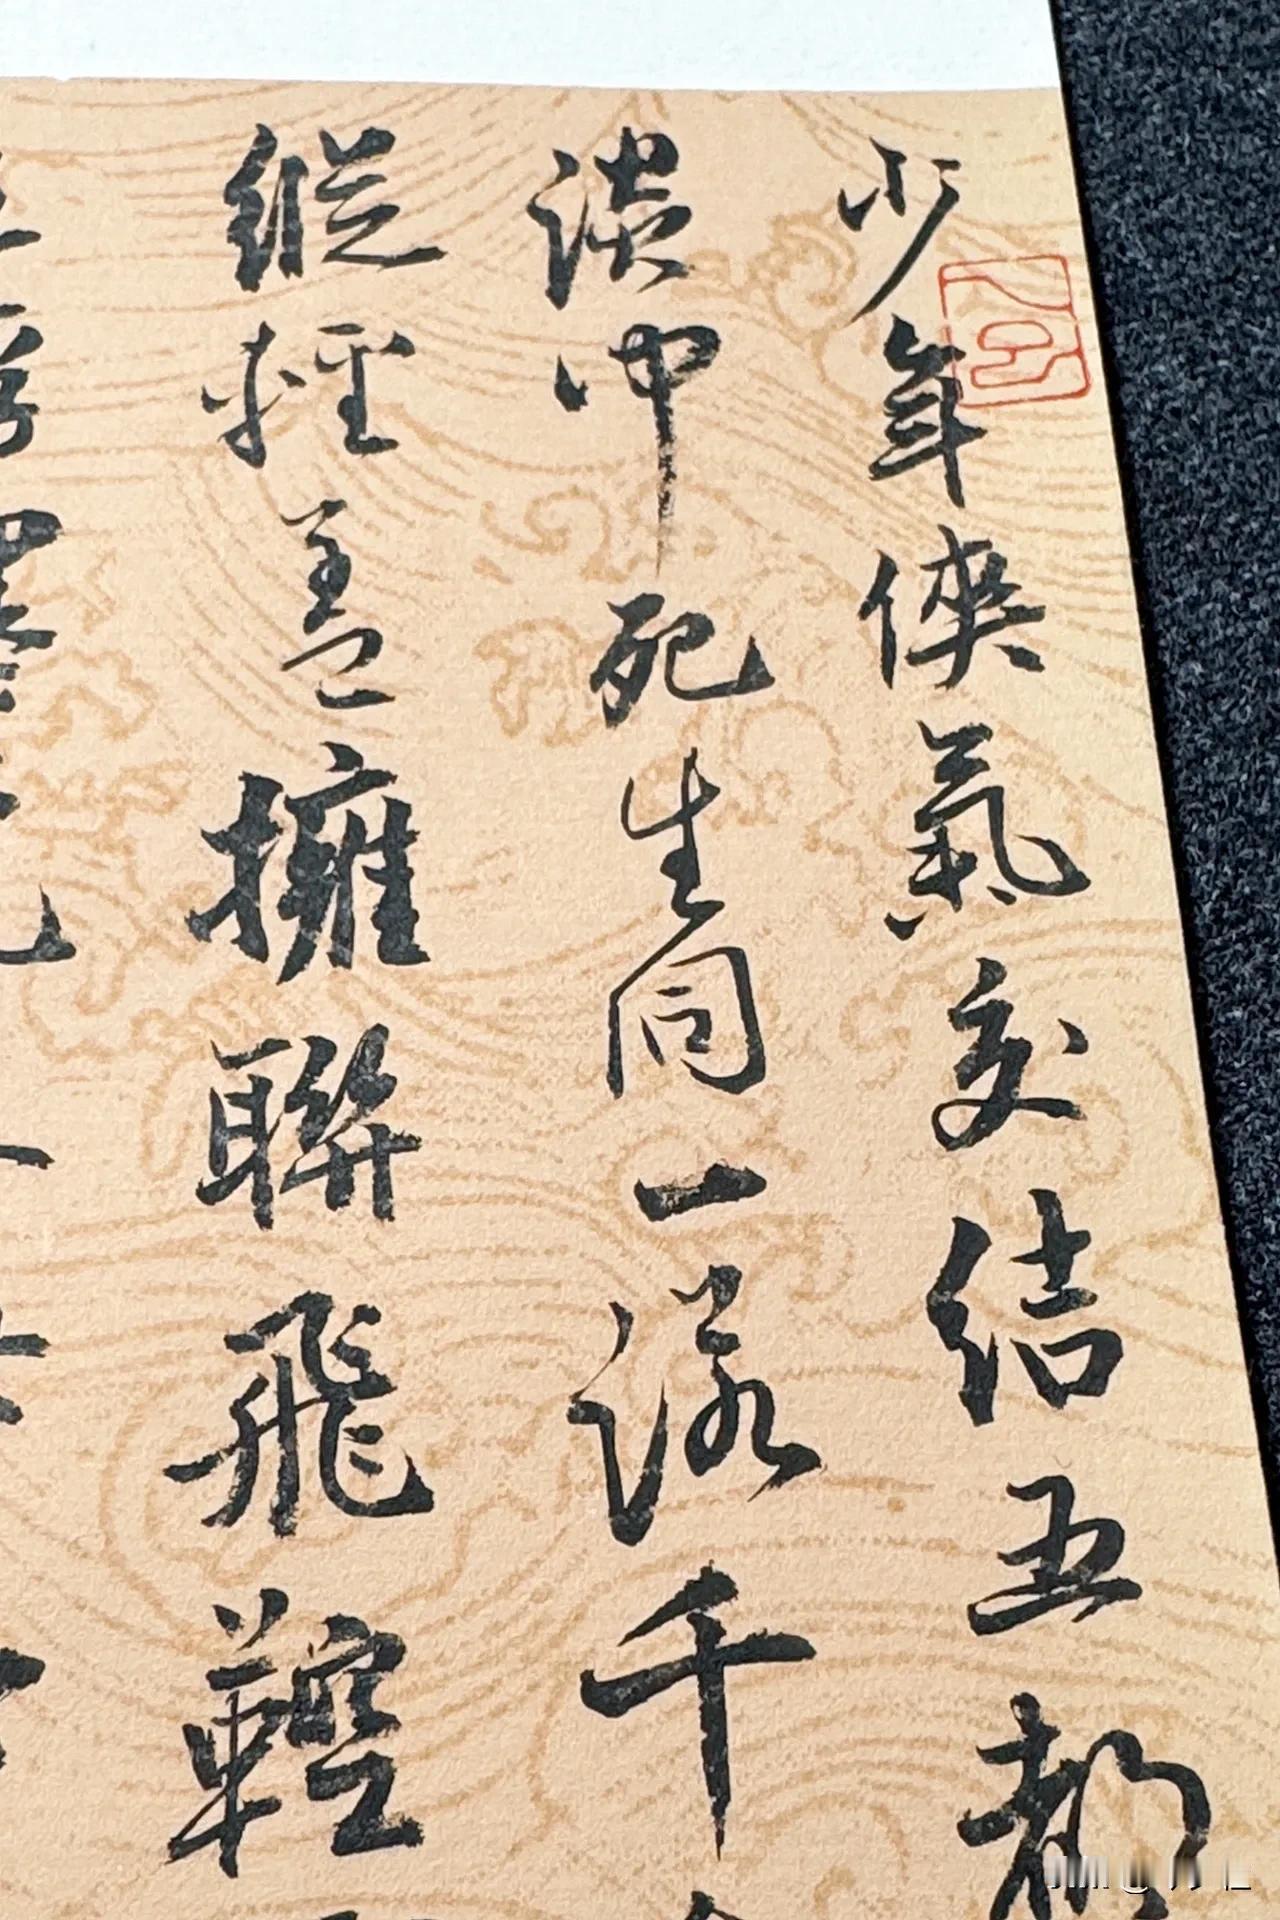 少年俠氣交結五都
談中死生同一諾千
縱輕蓋擁聯飛鞚